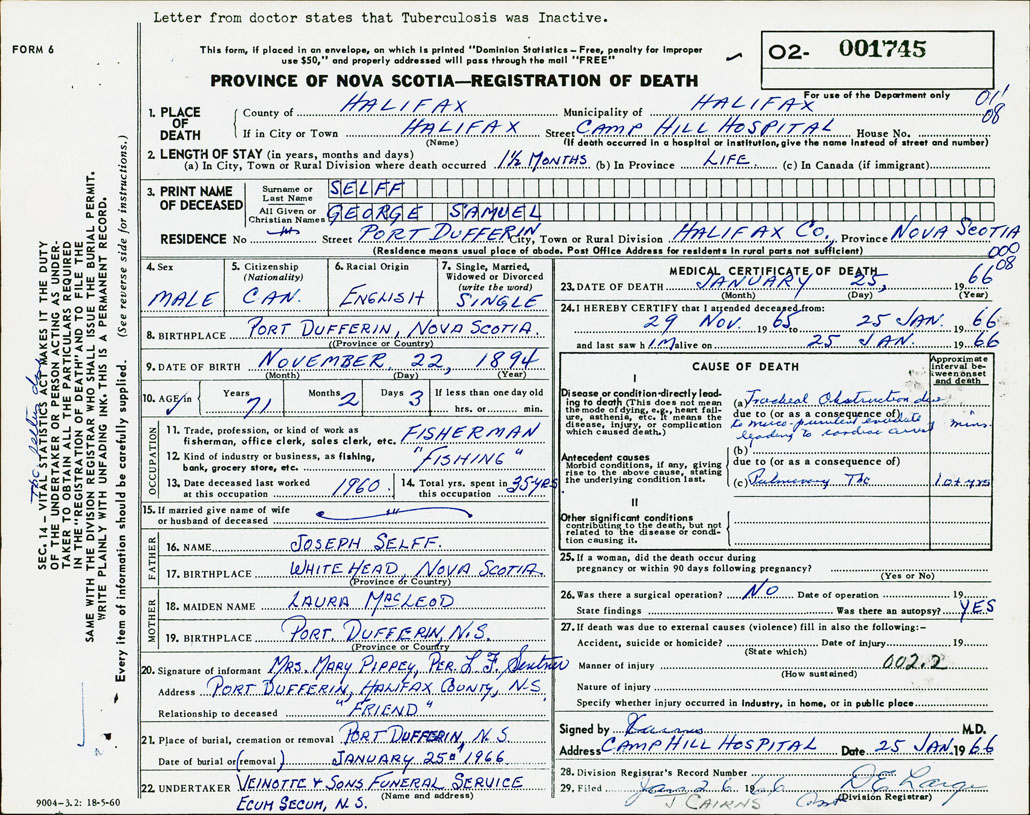 Letter from doctor states that Tuberculosis was Inactive.
FORM 6
This form, if placed in an envelope, on which is printed "Dominion Statistics – Free, penalty for improper
use $50," and properly addressed will pass through the mail "FREE"
02- 001745
PROVINCE OF NOVA SCOTIA—REGISTRATION OF DEATH
For use of the Department only
011
08
1. PLACE OF DEATH
County of HALIFAX Municipality of HALIFAX
If in City or Town HALIFAX Street CAMP HILL HOSPITAL House No.
(Name) (If death occurred in a hospital or institution, give the name instead of street and number)
2. LENGTH OF STAY (in years, months and days)
(a) In City, Town or Rural Division where death occurred 1½ MONTHS (b) In Province LIFE. (c) In Canada (if immigrant)
3. PRINT NAME OF DECEASED
Surname or Last Name SELFF
All Given or Christian Names GEORGE SAMUEL
RESIDENCE No Street PORT DUFFERIN City, Town or Rural Division HALIFAX CO., Province NOVA SCOTIA
(Residence means usual place of abode. Post Office Address for residents in rural parts not sufficient)
000
08
4. Sex
MALE
5. Citizenship
(Nationality)
CAN.
6. Racial Origin
ENGLISH
7. Single, Married, Widowed or Divorced
(write the word)
SINGLE
8. BIRTHPLACE PORT DUFFERIN, NOVA SCOTIA.
(Province or Country)
9. DATE OF BIRTH NOVEMBER 22, 1894
(Month) (Day) (Year)
10. AGE in Years 71 Months 2 Days 3 If less than one day old
hrs. or min.
OCCUPATION
11. Trade, profession, or kind of work as
fisherman, office clerk, sales clerk, etc. FISHERMAN
12. Kind of industry or business, as fishing,
bank, grocery store, etc. "FISHING"
13. Date deceased last worked
at this occupation 1960
14. Total yrs. spent in
this occupation 35 YRS
15. If married give name of wife
or husband of deceased
FATHER
16. NAME JOSEPH SELFF.
17. BIRTHPLACE WHITE HEAD, NOVA SCOTIA.
(Province or Country)
MOTHER
18. MAIDEN NAME LAURA MACLEOD
19. BIRTHPLACE PORT DUFFERIN, N.S.
(Province or Country)
20. Signature of informant MRS. MARY PIPPEY, PER. L. F.
Address PORT DUFFERIN, HALIFAX COUNTY, N-S
Relationship to deceased "FRIEND"
21. Place of burial, cremation or removal PORT DUFFERIN, N.S.
Date of burial or (removal) JANUARY 25 1966
22. UNDERTAKER VEINOTTE & SONS FUNERAL SERVICE
ECUM SECUM, N.S. (Name and address)
MEDICAL CERTIFICATE OF DEATH
23. DATE OF DEATH JANUARY 25, 1966
(Month) (Day) (Year)
24. I HEREBY CERTIFY that I attended deceased from:
29 NOV. 1965 to 25 JAN. 66
and last saw him alive on 25 JAN. 1966
CAUSE OF DEATH
Approximate interval between onset and death
I
Disease or condition directly leading to death (This does not mean the mode of dying, e.g., heart failure, asthenia, etc. It means the disease, injury, or complication which caused death.)
(a) Tracheal Obstruction due
due to (or as a consequence of)
to muco-purulent exudate
leading to cardiac arrest mins.
Antecedent causes
Morbid conditions, if any, giving rise to the above cause, stating the underlying condition last.
(b)
due to (or as a consequence of)
(c) Pulmonary Tbc 10+ yrs
II
Other significant conditions
contributing to the death, but not related to the disease or condition causing it.
25. If a woman, did the death occur during
pregnancy or within 90 days following pregnancy?
(Yes or No)
26. Was there a surgical operation? NO Date of operation 19
State findings Was there an autopsy? YES
27. If death was due to external causes (violence) fill in also the following:–
Accident, suicide or homicide? Date of injury 19
(State which)
Manner of injury 002.2
(How sustained)
Nature of injury
Specify whether injury occurred in industry, in home, or in public place
Signed by Cairns M.D.
Address CAMP HILL HOSPITAL Date 25 JAN. 1966
28. Division Registrar's Record Number
29. Filed Jan 26 1966
(Division Registrar)
J CAIRNS
9004-3.2: 18-5-60
SEC. 14 – VITAL STATISTICS ACT MAKES IT THE DUTY
OF THE UNDERTAKER OR PERSON ACTING AS UNDERTAKER TO OBTAIN ALL THE PARTICULARS REQUIRED
IN THE "REGISTRATION OF DEATH" AND TO FILE THE
SAME WITH THE DIVISION REGISTRAR WHO SHALL ISSUE THE BURIAL PERMIT.
WRITE PLAINLY WITH UNFADING INK. THIS IS A PERMANENT RECORD.
Every item of information should be carefully supplied. (See reverse side for instructions.)